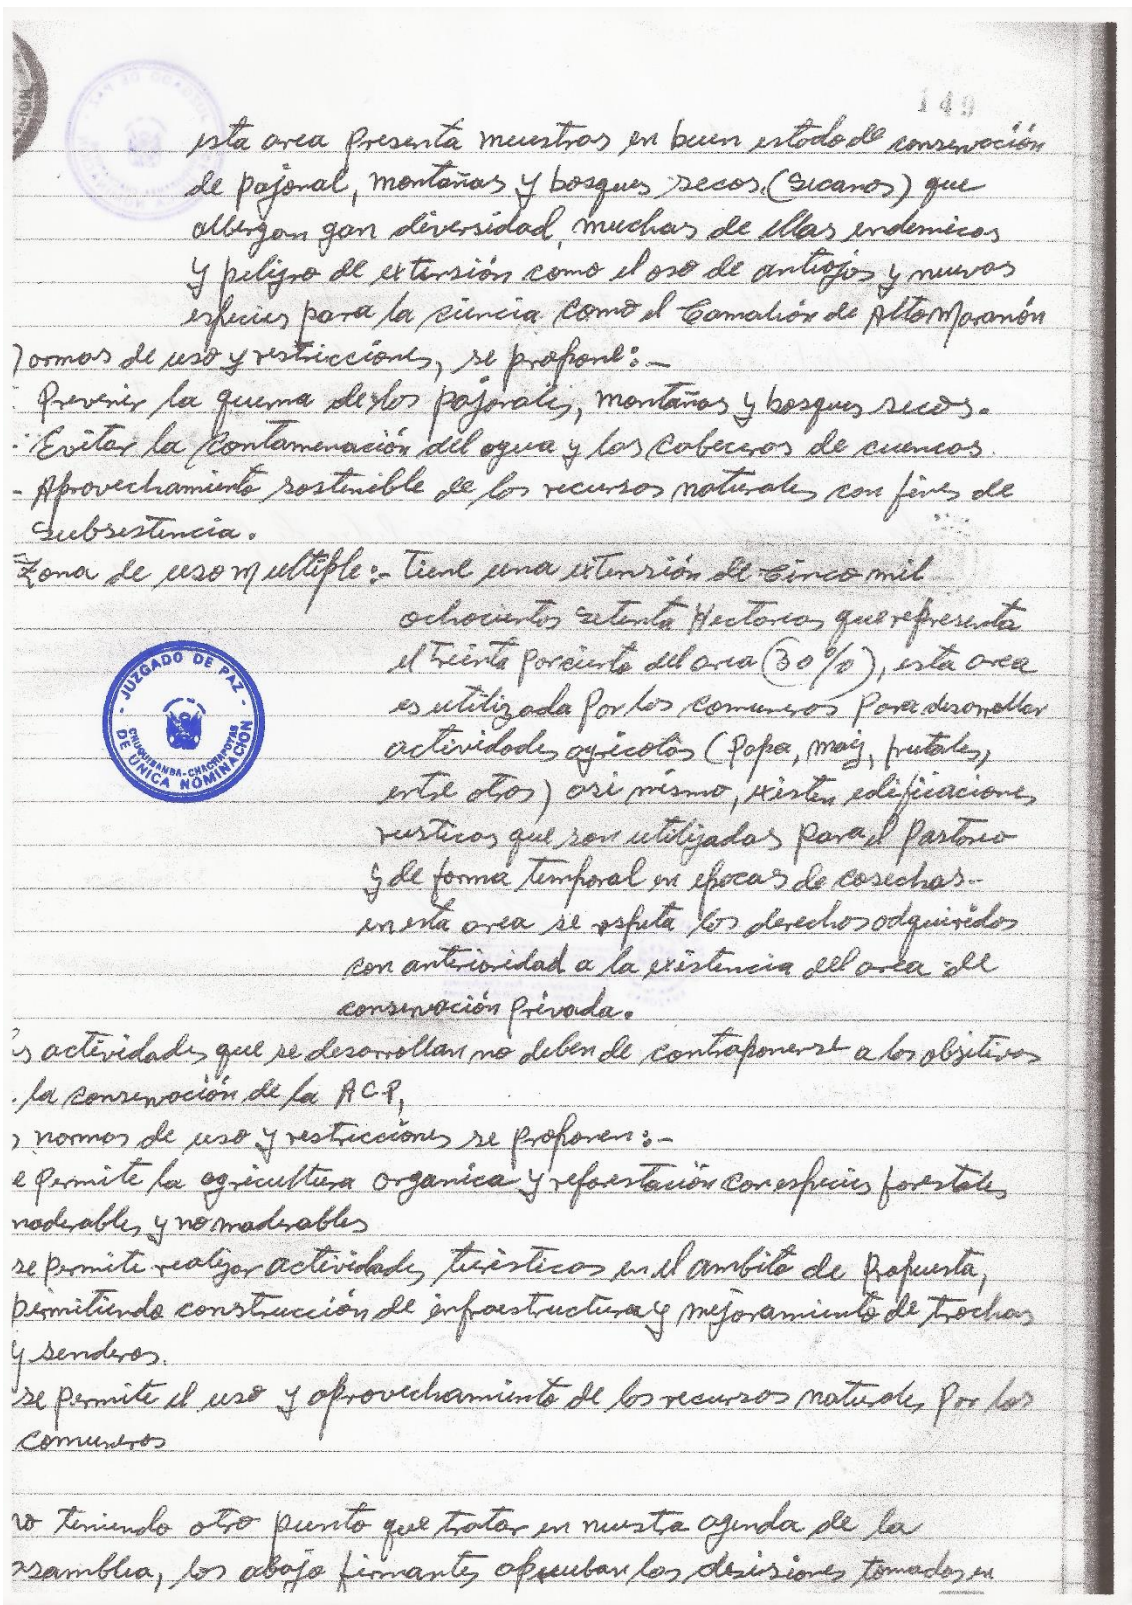 149
esta area presenta muestras en buen estado de conservación
de pajonal, montañas y bosques secos (secanos) que
albergan gan diversidad, muchas de ellas endemicas
y peligro de extensión como el oso de antiojos y nuevas
especies para la ciencia como el Camalión de Alto Marañón
ormas de uso y restricciones, se propone:-
Prevenir la quema de los pajonales, montañas y bosques secos.
- Evitar la contamenación del agua y las cabeceras de cuencas.
- Aprovechamiento sostenible de los recursos naturales con fines de
subsestencia.
Zona de uso Multiple:- tiene una extensión de cinco mil
ochocientos setenta Hectareas que representa
el treinta porciento del area (30%), esta area
es utilizada por los comuneros para desarrollar
JUZGADO DE PAZ
CHUQUIBAMBA-CHACHAPOYAS
DE UNICA NOMINACIÓN
actividades agricolas (papa, maiz, frutales,
entre otros) asi mismo, existen edificaciones
rusticas que son utilizadas para el pastoreo
y de forma temporal en epocas de cosechas-
en esta area se respeta los derechos adquiridos
con anterioridad a la existencia del area de
conservación privada.
s actividades que se desarrollan no deben de contraponerse a los objetivos
la conservación de la ACP,
normas de uso y restricciones se proponen:-
e permite la agricultura organica y reforestación con especies forestales
maderables y no maderables
se permite realizar actividades turisticas en el ambito de propuesta,
permitiendo construcción de infraestructura y mejoramiento de trochas
y senderos.
se permite el uso y aprovechamiento de los recursos naturales por los
comuneros
no teniendo otro punto que tratar en nuestra agenda de la
asamblea, los abajo firmantes aprueban las desisiones tomadas en